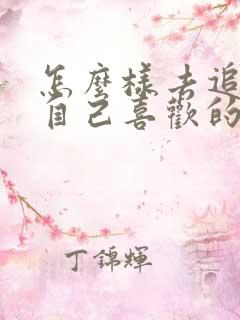 怎麼樣去追
自己喜歡的
丁錦輝